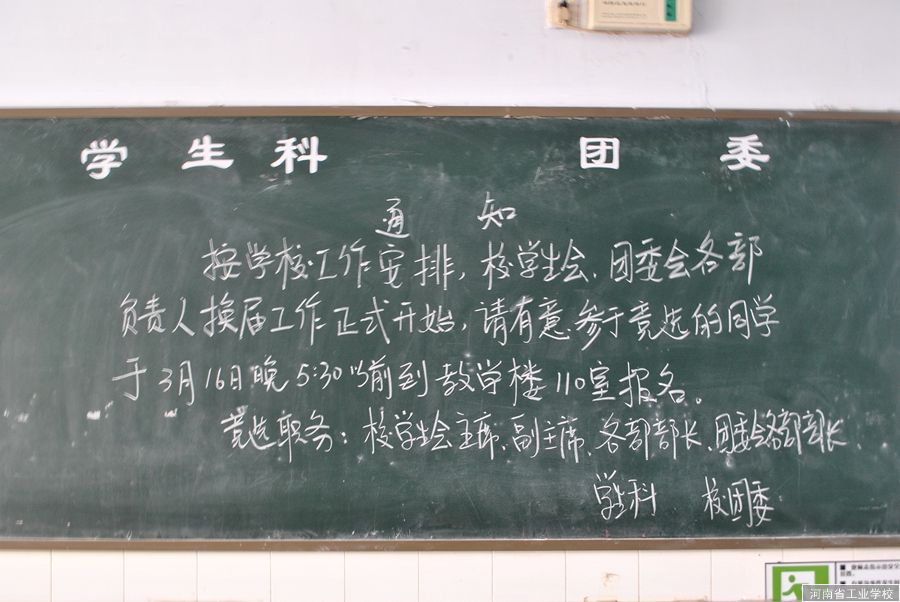 学生科 团委
通知
按学校工作安排，校学生会、团委会各部
负责人换届工作正式开始，请有意参于竞选的同学
于3月16日晚5:30以前到教学楼110室报名。
竞选职务：校学生会主席、副主席、各部部长、团委会各部部长
学生科 校团委
河南省工业学校